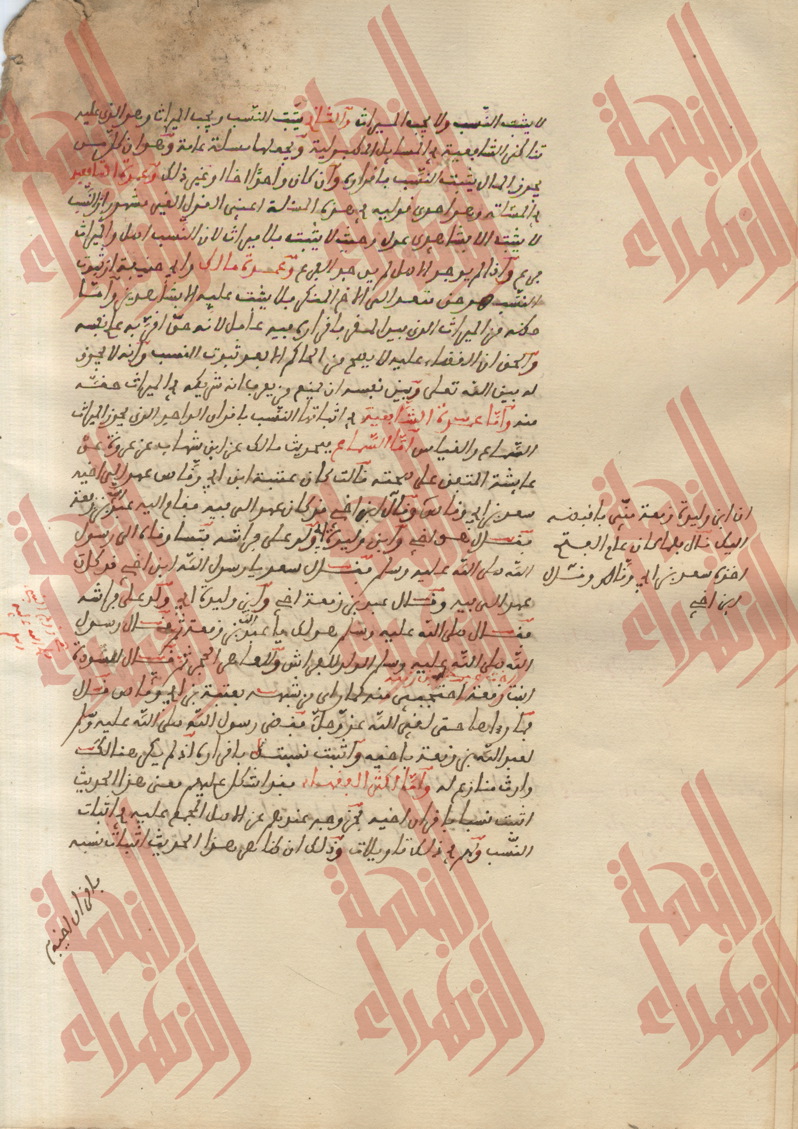 لا يثبت النسب ولا يجب الميراث والثاني يثبت النسب ويجب الميراث وهو الذي عليه
تناظر الشافعية في المسايل الطبولية ويجعلها مسئلة عامة وهو ان كل من
يحوز المال يثبت النسب باقراره وان كان واحدا اخا او غير ذلك وعمدة الشافعية
في المسئلة وهو احدى قوليه في هذه المسئلة اعنى القول الغير مشهور ان النسب
لا يثبت الا بشاهدي عدل وحيث لا يثبت فلا ميراث لان النسب اصل والميراث
فرع واذا لم يوجد الاصل لم يوجد الفرع وعمدة مالك وابي حنيفة ان ثبوت
النسب هو حق متعد الى الاخ المنكر فلا يثبت عليه الا بشاهدين واما
حظه من الميراث الذي بيد المقر فاقراره فيه عامل لانه حق اقر به على نفسه
والحق ان القضاء عليه لا يصح من الحاكم الا بعد ثبوت النسب وانه لا يجوز
له بين الله تعلى وبين نفسه ان يمنع من يعرف انه شريكه في الميراث حظه
منه واما عمدة الشافعية في اثباتها النسب باقرار الواحد الذي يحوز الميراث
السماع والقياس اما السماع فحديث مالك عن ابن شهاب عن عروة عن
عايشة المتفق على صحته قالت كان عتبة ابن ابي وقاص عهد الى اخيه
سعد بن ابي وقاص وقال ابن اخي قد كان عهد الي فيه فقام اليه عبد بن زمعة
فقال هو اخي وابن وليدة ابي ولد على فراشه فتساوقاه الى رسول
الله صلى الله عليه وسلم فقال سعد يا رسول الله ابن اخي قد كان
عهد الي فيه وقال عبد بن زمعة اخي وابن وليدة ابي ولد على فراشه
فقال صلى الله عليه وسلم هو لك يا عبد الله بن زمعة ثم قال رسول
الله صلى الله عليه وسلم الولد للفراش وللعاهر الحجر ثم قال لسودة
ابنت زمعة احتجبي منه لما راى من شبهه بعتبة بن ابي وقاص قال
فما رءاها حتى لقي الله عز وجل فقضى رسول الله صلى الله عليه وسلم
لعبد الله بن زمعة باخيه واثبت نسبه باقراره اذ لم يكن هنالك
وارث منازع له واما اكثر الفقهاء فقد اشكل عليهم معنى هذا الحديث
اثبت نسبا باقرار اخيه لخروجه عندهم عن الاصل المجمع عليه في اثبات
النسب ولهم في ذلك تاويلات وذلك ان ظاهر هذا الحديث اثبات نسبه
باقرار اخيه
ان ابن وليدة زمعة مني فاقبضه
اليك قال فلما كان عام الفتح
اخذه سعد بن ابي وقاص وقال
ابن اخي